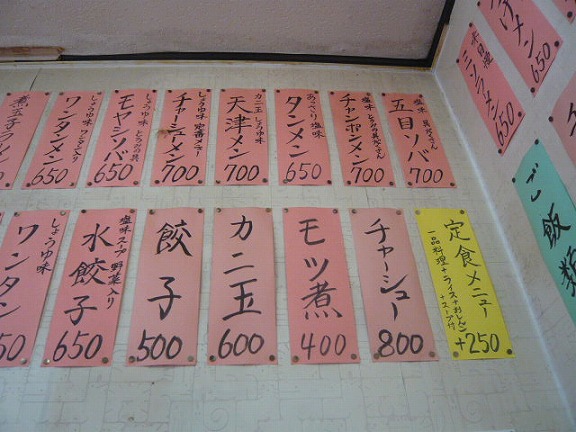 五目ソバ
塩味 具だくさん
700
チャンポンメン
塩味 とろみの具だくさん
700
タンメン
あっさり塩味
650
天津メン
カニ玉 しょうゆ味
700
チャーシューメン
しょうゆ味 定番メニュー
700
モヤシソバ
しょうゆ味 とろみの具
650
ワンタンメン
しょうゆ味 ワンタン入り
650
定食メニュー
一品料理+ライス+おしんこ
+スープ付
+250
チャーシュー
800
モツ煮
400
カニ玉
600
餃子
500
水餃子
塩味スープ 野菜入り
650
ワンタン
しょうゆ味
50
つけメン
650
650
ご飯類